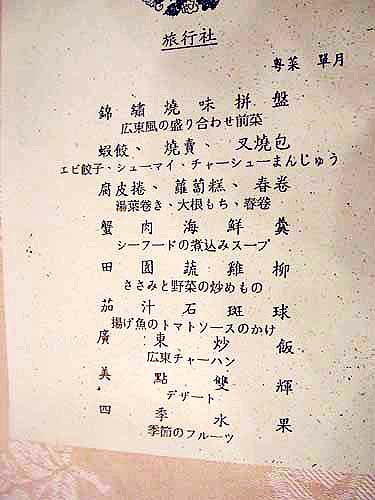 旅行社
粵菜 單月
錦繡燒味拼盤
広東風の盛り合わせ前菜
蝦餃、燒賣、叉燒包
エビ餃子、シューマイ、チャーシューまんじゅう
腐皮捲、蘿蔔糕、春卷
湯葉巻き、大根もち、春卷
蟹肉海鮮羹
シーフードの煮込みスープ
田園蔬雞柳
ささみと野菜の炒めもの
茄汁石斑球
揚げ魚のトマトソースのかけ
廣東炒飯
広東チャーハン
美點雙輝
デザート
四季水果
季節のフルーツ